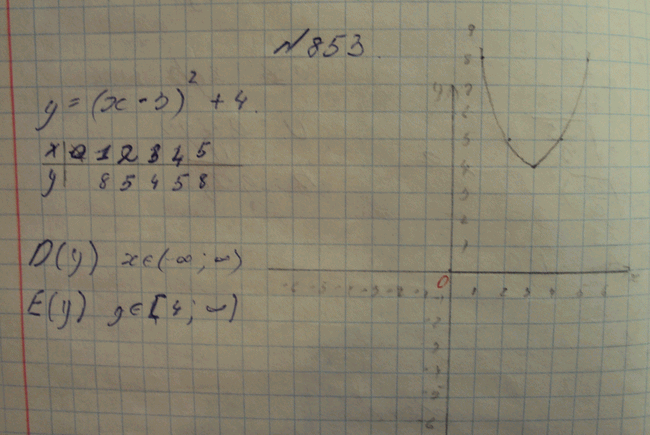 №853.
y = (x - 3)² + 4.
x | 1 2 3 4 5
y | 8 5 4 5 8
D(y) x∈(-∞; ∞)
E(y) y∈[4; ∞)
9
8
y 7
6
5
4
3
2
1
0 1 2 3 4 5 6 x
-6 -5 -4 -3 -2 -1
-1
-2
-3
-4
-5
-6